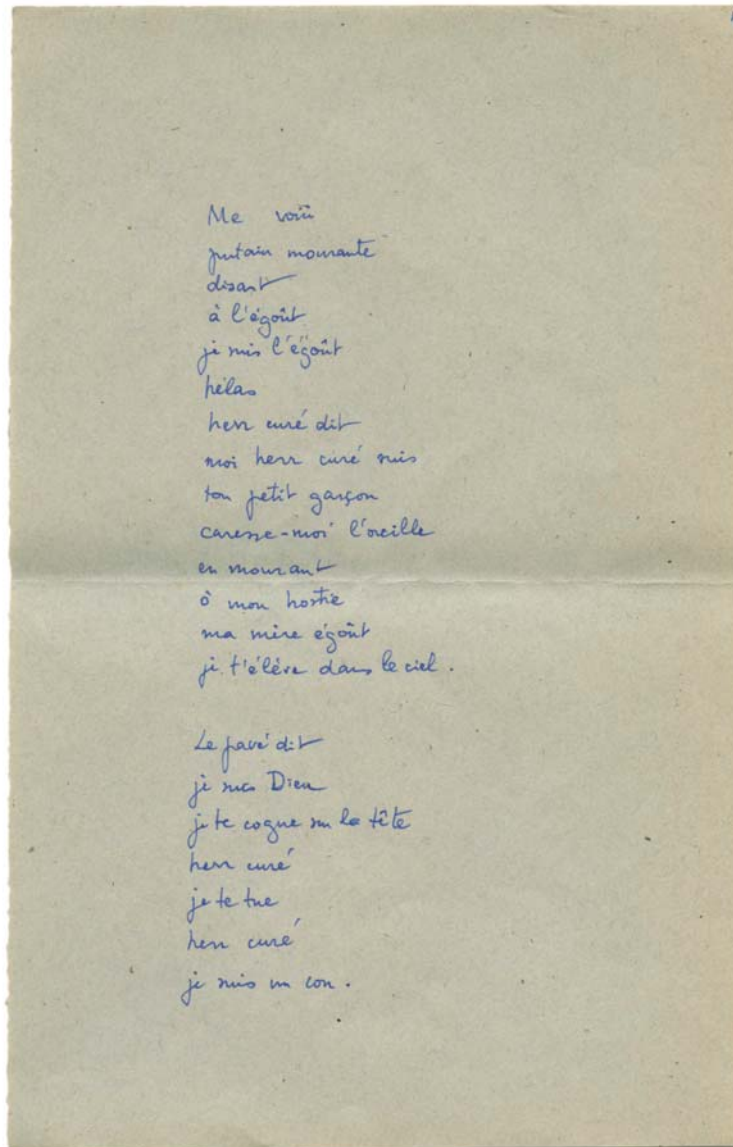 Me voici
putain mourante
disant
à l'égoût
je suis l'égoût
hélas
herr curé dit
moi herr curé suis
ton petit garçon
caresse-moi l'oreille
en mourant
ô mon hostie
ma mère égoût
je t'élève dans le ciel.
Le pavé dit
je suis Dieu
je te cogne sur la tête
herr curé
je te tue
herr curé
je suis un con.